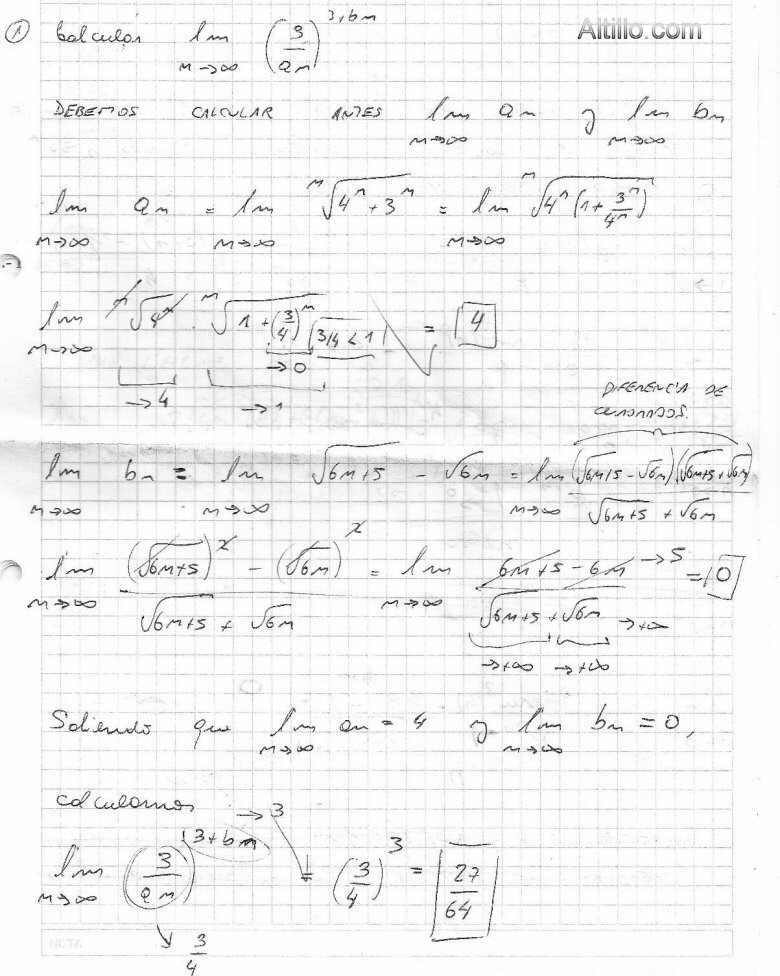 Altillo.com
① Calcular lim n→∞ (3/an)^(3+bn)
DEBEMOS CALCULAR ANTES lim n→∞ an y lim n→∞ bn
lim n→∞ an = lim n→∞ ⁿ√(4ⁿ + 3ⁿ) = lim n→∞ ⁿ√(4ⁿ(1 + 3ⁿ/4ⁿ))
lim n→∞ ⁿ√4ⁿ · ⁿ√(1 + (3/4)ⁿ) (3/4 < 1) = 4
→0
→4 →1
DIFERENCIA DE
CUADRADOS.
lim n→∞ bn = lim n→∞ √(6n+5) - √6n = lim n→∞ (√(6n+5) - √6n)(√(6n+5) + √6n) / (√(6n+5) + √6n)
lim n→∞ ((√(6n+5))² - (√6n)²) / (√(6n+5) + √6n) = lim n→∞ (6n+5-6n) →5 / (√(6n+5) + √6n) →+∞ = 0
→+∞ →+∞
Sabiendo que lim n→∞ an = 4 y lim n→∞ bn = 0,
calculamos
→3
lim n→∞ (3/an)^(3+bn) = (3/4)³ = 27/64
3/4
NOTA